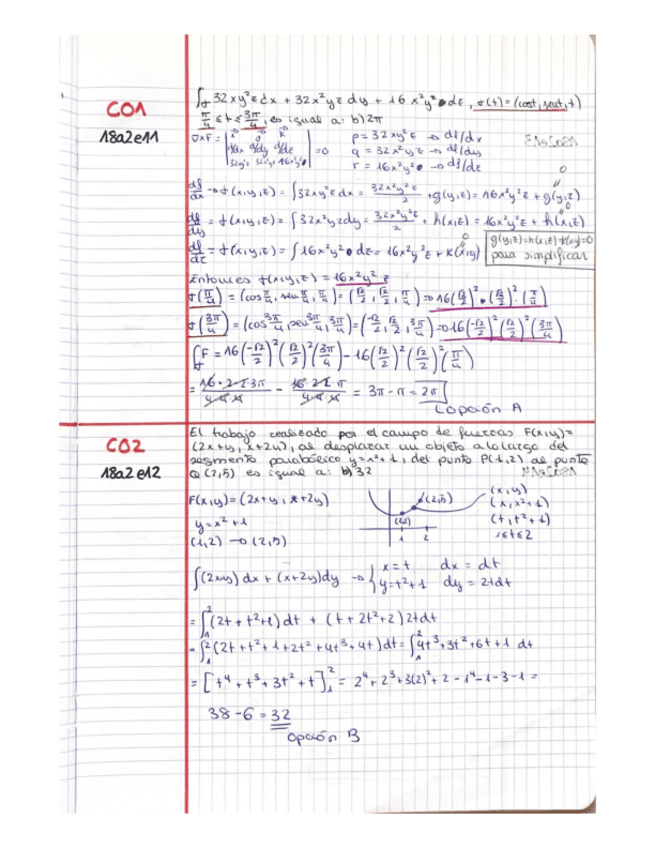 C01
18a2e11
∫σ 32xy²z dx + 32x²yz dy + 16x²y² dz, σ(t) = (cost, sent, t)
π/4 ≤ t ≤ 3π/4, es igual a: b) 2π
∇xF = | i j k d/dx d/dy d/dz 32xy²z 32x²yz 16x²y² | = 0
p = 32xy²z → df/dx
q = 32x²yz → df/dy
r = 16x²y² → df/dz
df/dx → f(x,y,z) = ∫32xy²z dx = 32x²y²z/2 + g(y,z) = 16x²y²z + g(y,z) 0
df/dy = f(x,y,z) = ∫32x²yz dy = 32x²y²z/2 + h(x,z) = 16x²y²z + h(x,z) 0
df/dz = f(x,y,z) = ∫16x²y² dz = 16x²y²z + k(x,y) 0
g(y,z)=h(x,z)=k(x,y)=0
para simplificar
Entonces f(x,y,z) = 16x²y²z
σ(π/4) = (cos π/4, sen π/4, π/4) = (√2/2, √2/2, π/4) ⇒ 16(√2/2)²·(√2/2)²·(π/4)
σ(3π/4) = (cos 3π/4, sen 3π/4, 3π/4) = (-√2/2, √2/2, 3π/4) ⇒ 16(-√2/2)²(√2/2)²(3π/4)
∫σ F = 16(-√2/2)²(√2/2)²(3π/4) - 16(√2/2)²(√2/2)²(π/4)
= 16·2·2·3π/4·4·4 - 16·2·2·π/4·4·4 = 3π - π = 2π
Opción A
C02
18a2e12
El trabajo realizado por el campo de fuerzas F(x,y)=
(2x+y, x+2y), al desplazar un objeto a lo largo del
segmento parabólico y=x²+1, del punto P(1,2) al punto
Q(2,5) es igual a: b) 32
F(x,y) = (2x+y, x+2y)
y = x²+1
(1,2) → (2,5)
(2,5)
(1,2)
1 2
(x,y)
(x,x²+1)
(t,t²+1)
1≤t≤2
∫(2x+y) dx + (x+2y)dy → { x = t dx = dt
y = t²+1 dy = 2tdt
= ∫₁²(2t + t²+1) dt + (t + 2t²+2) 2tdt
= ∫₁²(2t + t² + 1 + 2t² + 4t³ + 4t) dt = ∫₁² 4t³+3t²+6t+1 dt
= [t⁴ + t³ + 3t² + t]₁² = 2⁴ + 2³ + 3(2)² + 2 - 1⁴ - 1 - 3 - 1 =
38 - 6 = 32
Opción B